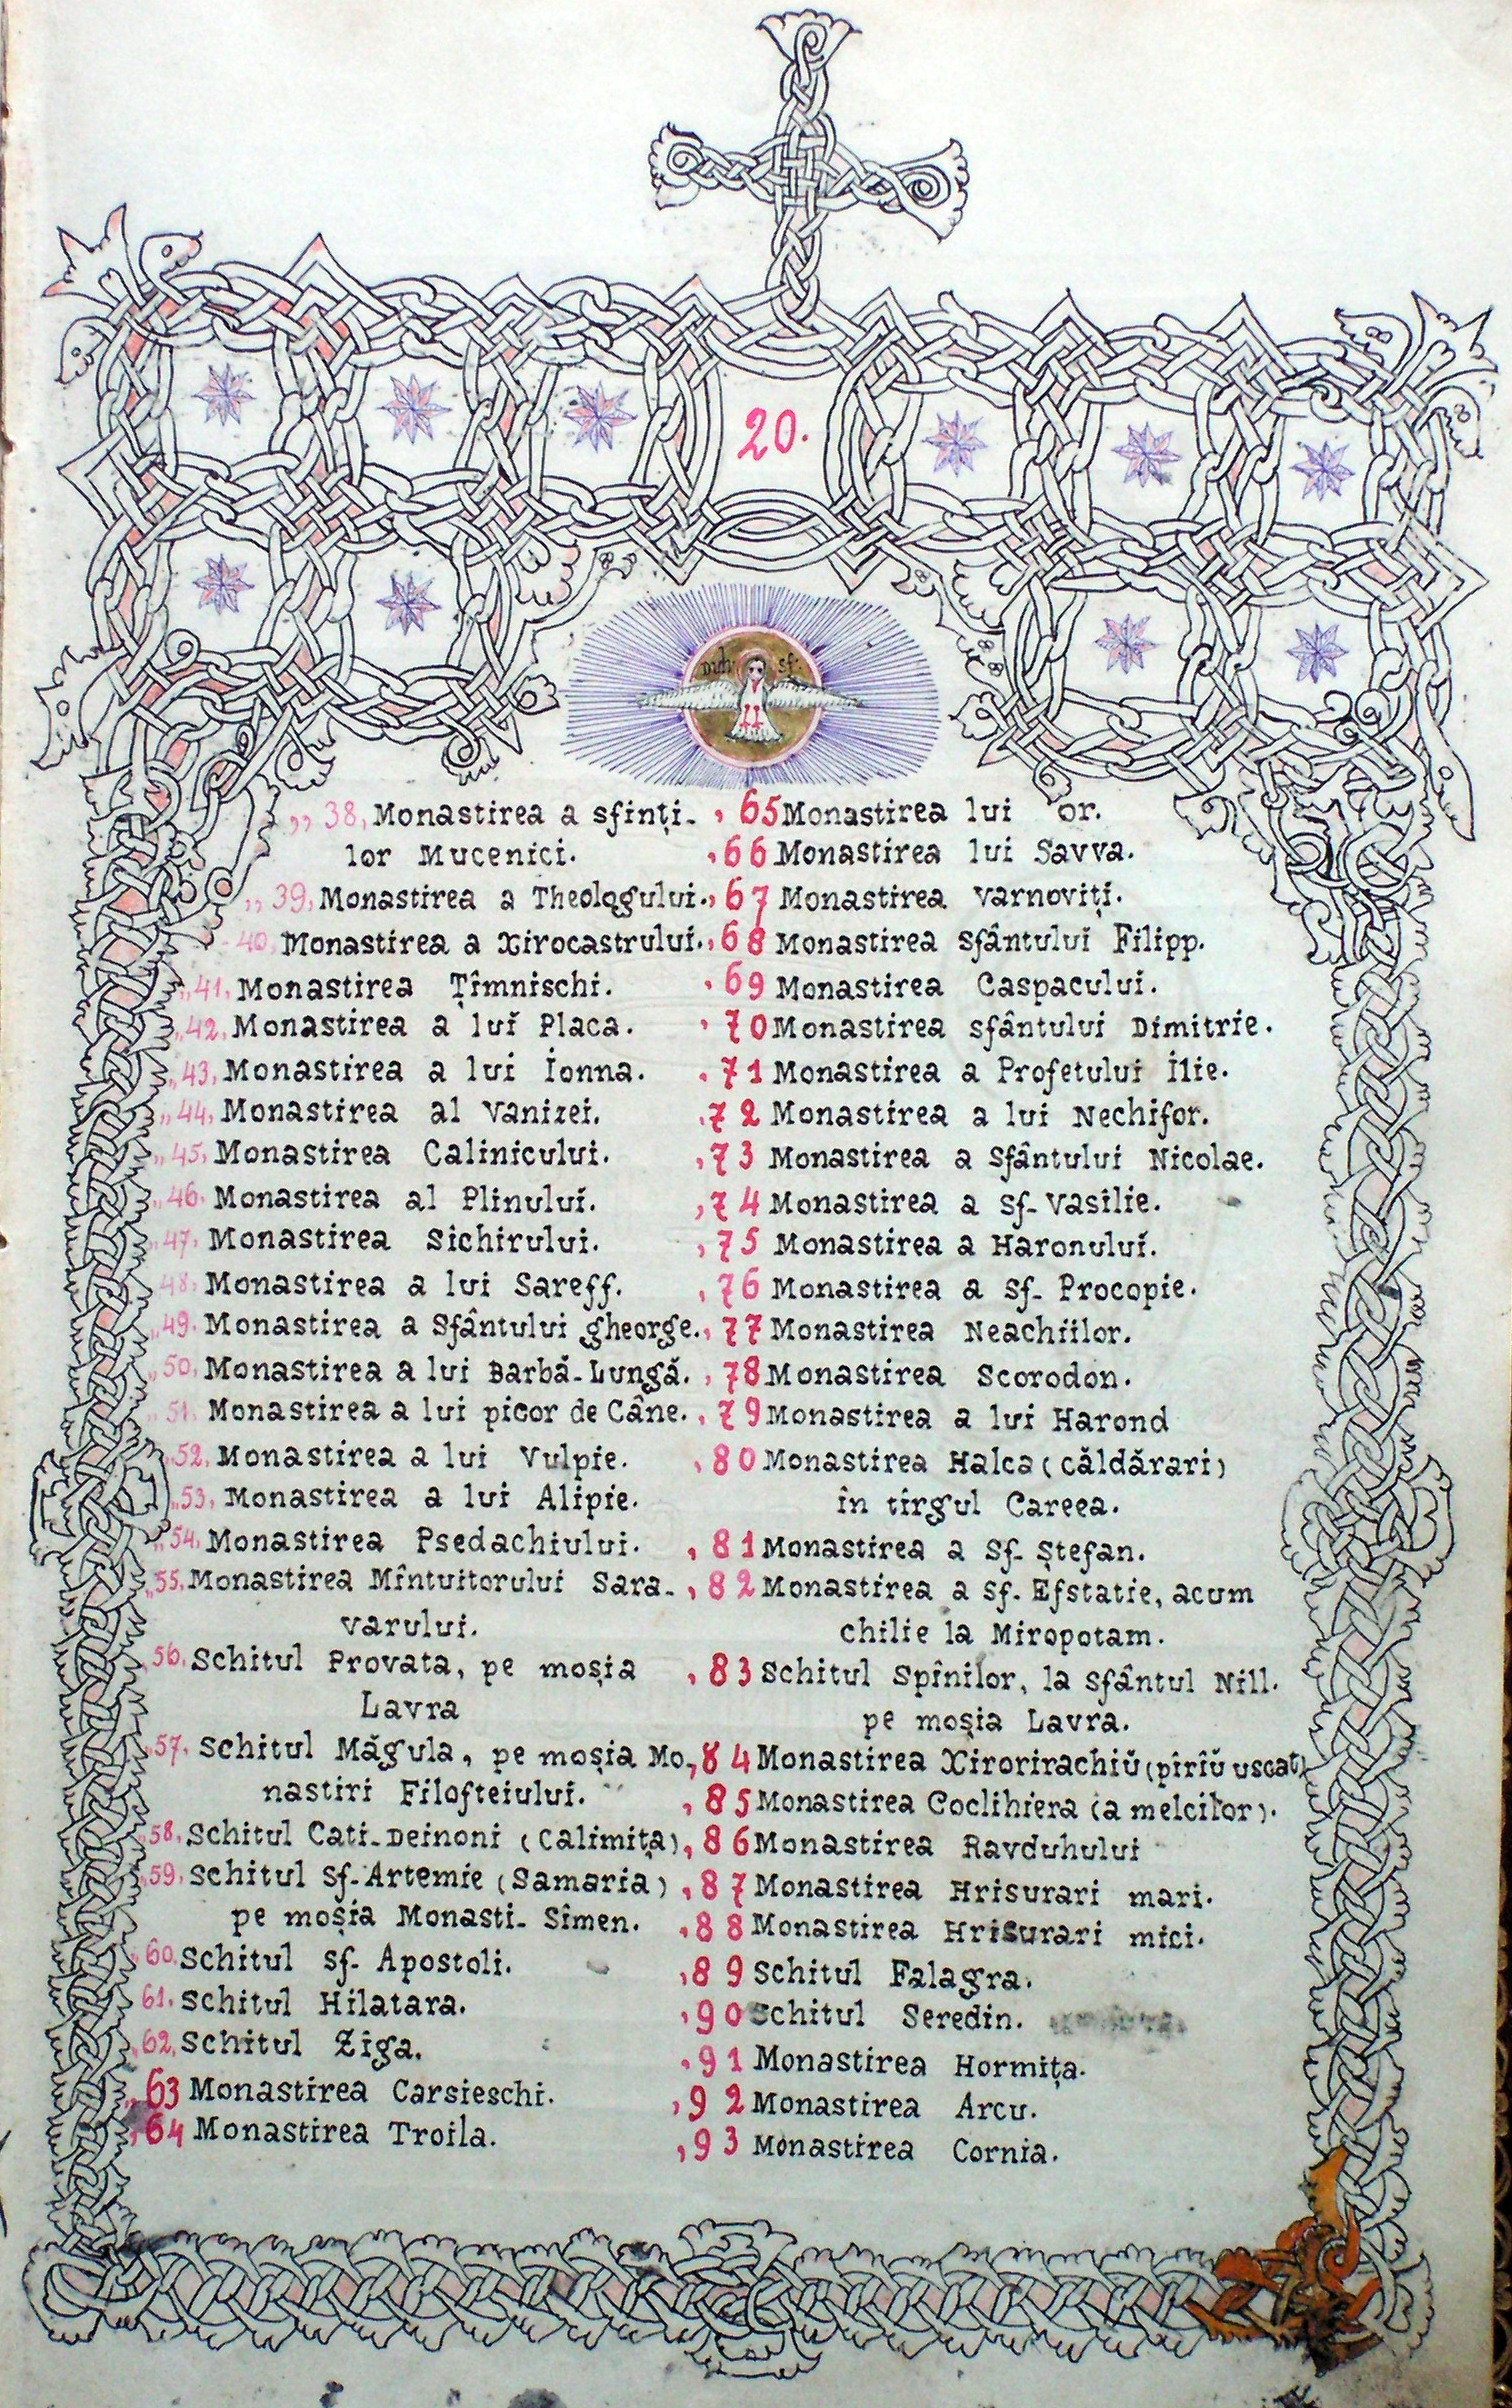 20.
Duh sf.
,, 38, Monastirea a sfinți-
lor Mucenici.
,, 39, Monastirea a Theologului.
40, Monastirea a Xirocastrului.
,, 41, Monastirea Țîmnischi.
,, 42, Monastirea a luĭ Placa.
,, 43, Monastirea a lui Ionna.
,, 44, Monastirea al Vanizei.
,, 45, Monastirea Calinicului.
,, 46. Monastirea al Plinuluĭ.
,, 47, Monastirea Sichirului.
48, Monastirea a lui Sareff.
,, 49. Monastirea a Sfântului gheorge.
,, 50, Monastirea a lui Barbă-Lungă.
,, 51, Monastirea a lui picor de Câne.
,, 52, Monastirea a lui Vulpie.
,, 53, Monastirea a lui Alipie.
,, 54, Monastirea Psedachiului.
,, 55, Monastirea Mîntuitorului Sara-
varului.
,, 56, Schitul Provata, pe moșia
Lavra
,, 57, Schitul Măgula, pe moșia Mo
nastiri Filofteiului.
,, 58, Schitul Cati-Deinoni (Calimița)
,, 59, Schitul Sf-Artemie (Samaria)
pe moșia Monasti- Sîmen.
,, 60. Schitul sf- Apostoli.
61, Schitul Hilatara.
,, 62, Schitul Ziga.
,, 63 Monastirea Carsieschi.
, 64 Monastirea Troila.
, 65 Monastirea lui or.
, 66 Monastirea lui Savva.
, 67 Monastirea Varnoviți.
, 68 Monastirea sfântuluĭ Filipp.
, 69 Monastirea Caspacului.
, 70 Monastirea sfântului Dimitrie.
, 71 Monastirea a Profetului Ilie.
, 72 Monastirea a lui Nechifor.
, 73 Monastirea a Sfântului Nicolae.
, 74 Monastirea a Sf- Vasilie.
, 75 Monastirea a Haronuluĭ.
, 76 Monastirea a Sf- Procopie.
, 77 Monastirea Neachiilor.
, 78 Monastirea Scorodon.
, 79 Monastirea a lui Harond
, 80 Monastirea Halca (căldărari)
în tîrgul Careea.
, 81 Monastirea a Sf- Ștefan.
, 82 Monastirea a Sf- Efstatie, acum
chilie la Miropotam.
, 83 Schitul Spînilor, la Sfântul Nill.
pe moșia Lavra.
, 84 Monastirea Xirorirachiŭ (pîrîŭ uscat)
, 85 Monastirea Coclihiera (a melcilor).
, 86 Monastirea Ravduhului
, 87 Monastirea Hrisurari mari.
, 88 Monastirea Hrisurari mici.
, 89 Schitul Falagra.
, 90 Schitul Seredin.
, 91 Monastirea Hormița.
, 92 Monastirea Arcu.
, 93 Monastirea Cornia.